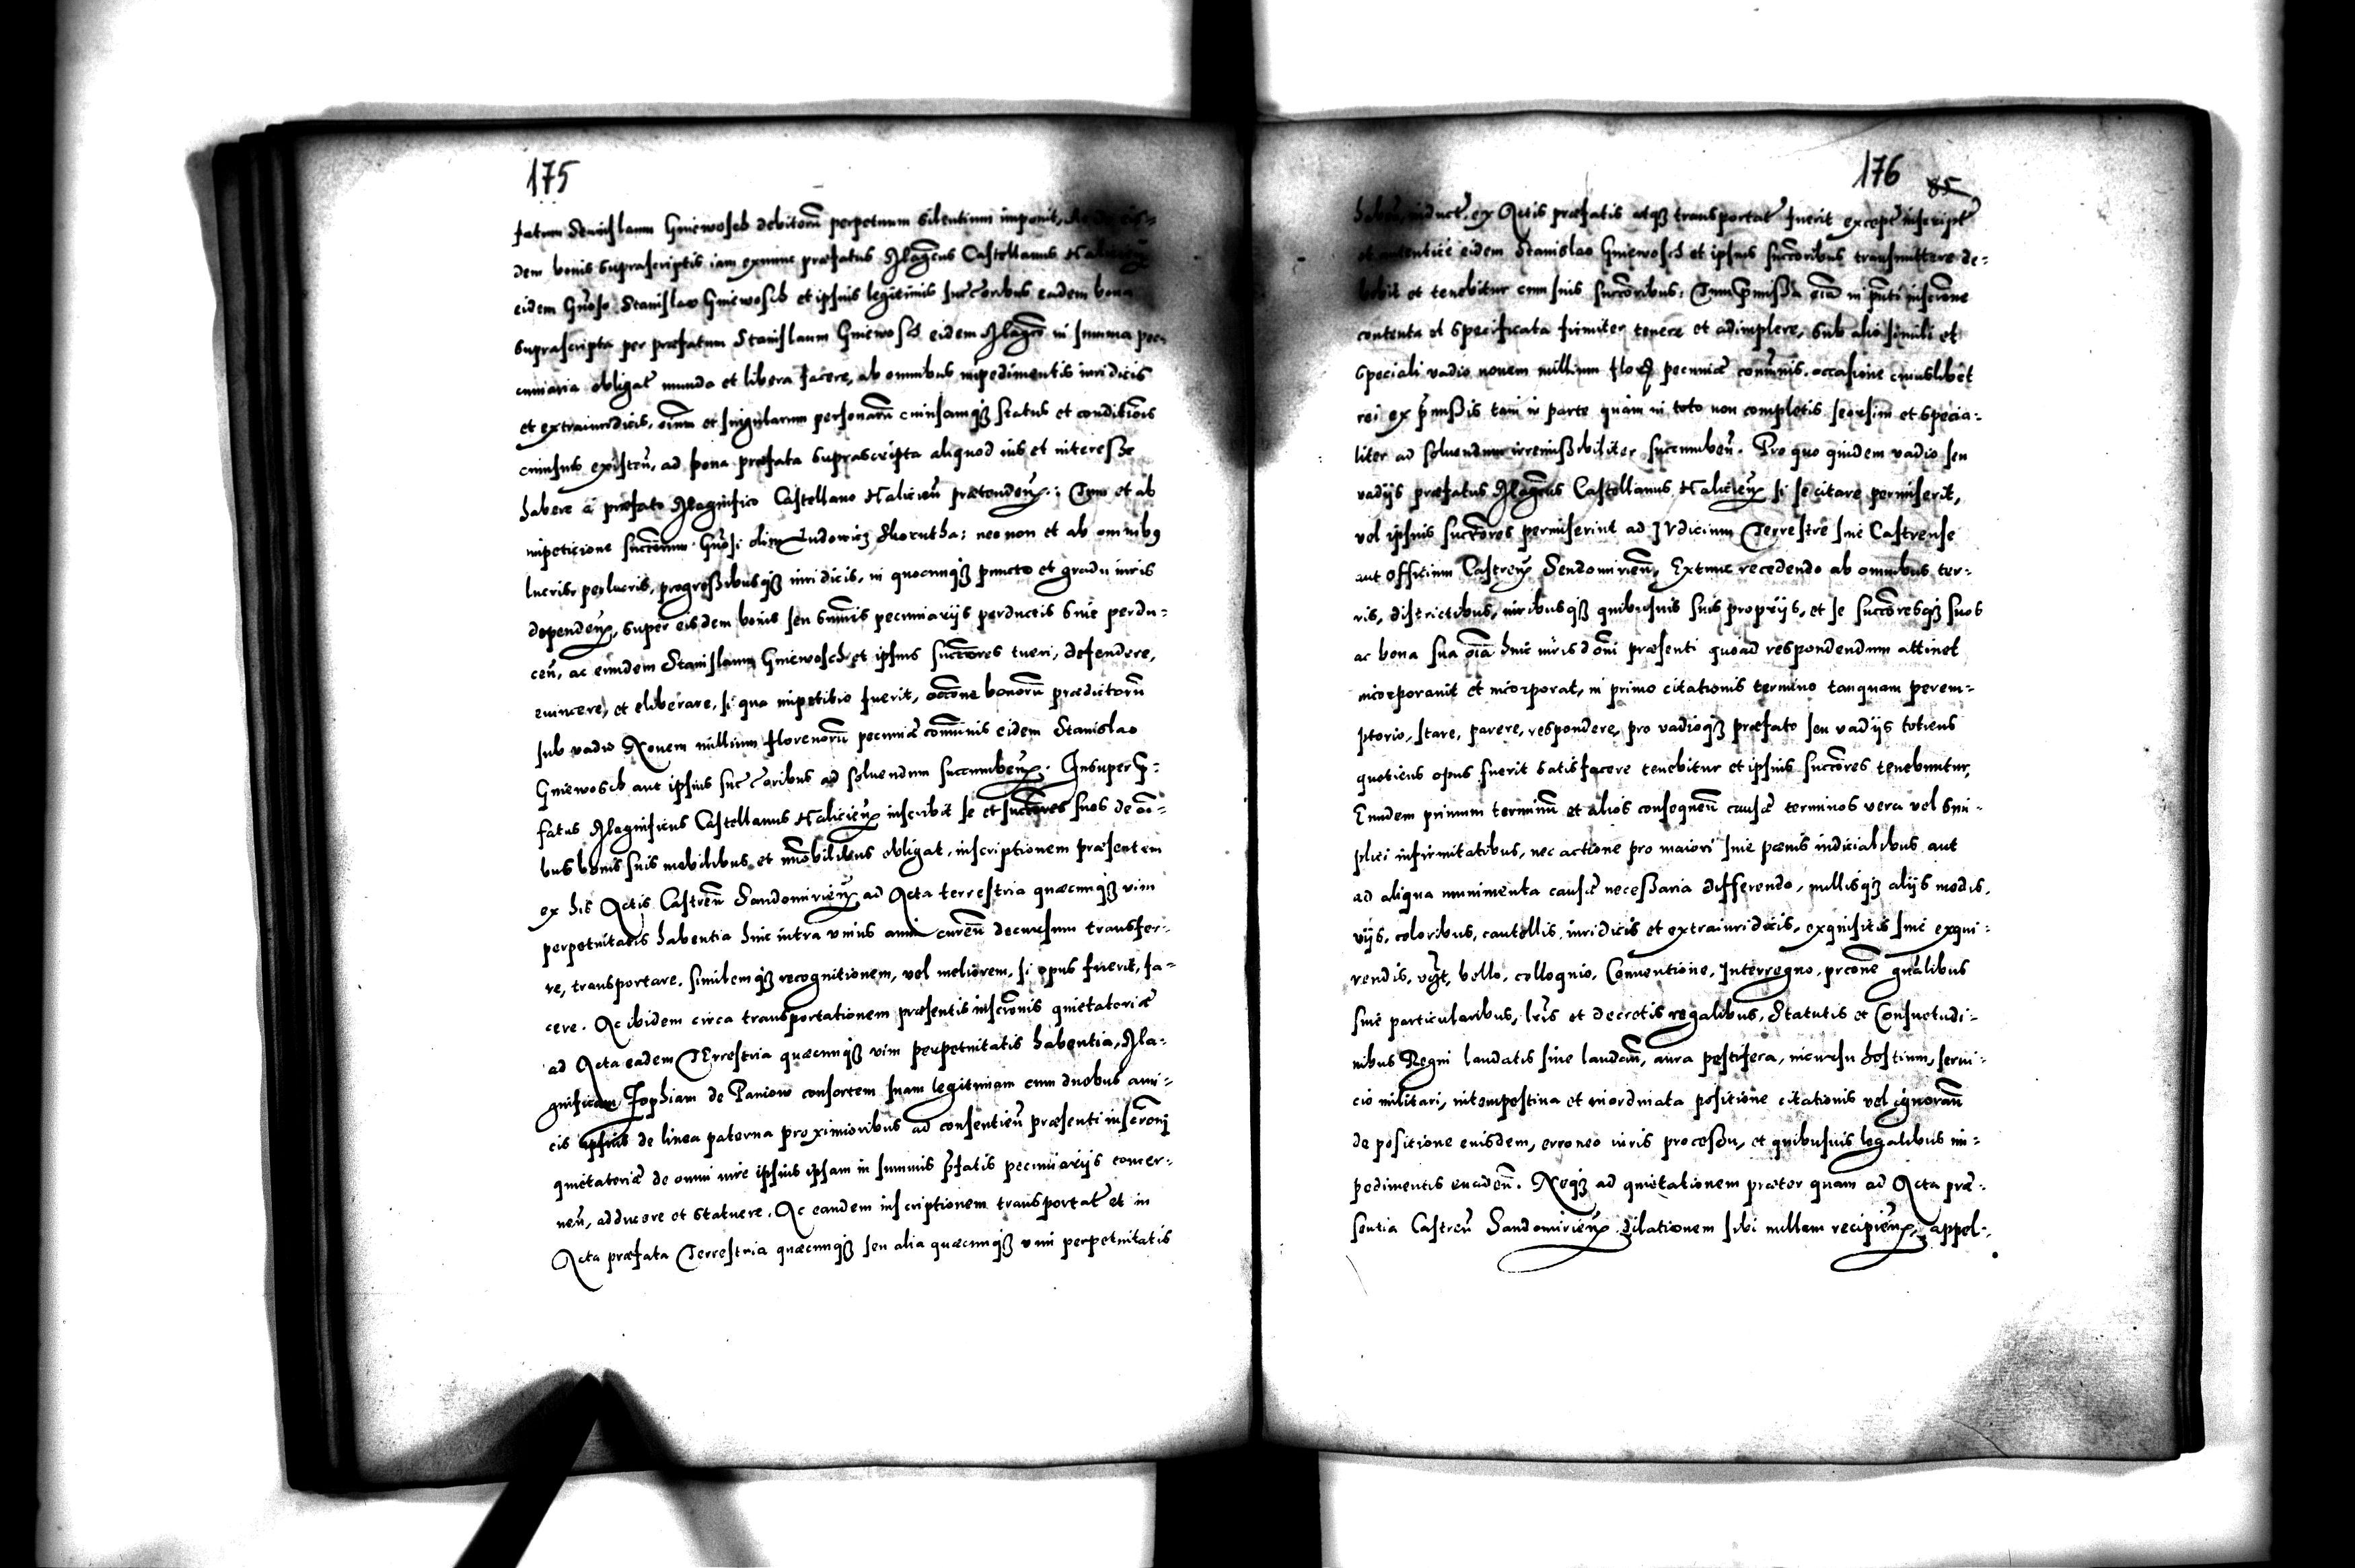 175
fatum Stanislaum Gniewosch debitorũ perpetuum silentium imponit, Ac de eis=
dem bonis suprascriptis iam exnunc præfatus Magcus Castellanus Halicieñ
eidem Gñoso Stanislao Gniewosch et ipsius legitimis succoribus eadem bona
suprascripta per præfatum Stanislaum Gniewosch eidem Magco in summa pec-
cuniaria obligat munda et libera facere, ab omnibus impedimentis iuridicis
et extraiuridicis, oium et singularum personarũ cuiusamq status et conditiõis
cuiusuis existeñ, ad bona præfata suprascripta aliquod ius et interesse
habere a præfato Magnifico Castellano Halicieñ prætendeñ: Tum et ab
impeticione succorum Gñosi olim Ludowicz Skorutha: nec non et ab omnibq
lucris perlucris, progressibusq iuridicis, in quocunq puncto et gradu iuris
dependeñ, super eisdem bonis seu summis pecuniarijs perductis siue perdu=
ceñ, ac eundem Stanislaum Gniewosch et ipsius succores tueri, defendere,
euincere, et eliberare, si qua impetitio fuerit, occõne bonorũ prædictorũ
sub vadio Nouem millium florenorũ pecuniæ cõmunis eidem Stanislao
Gniewosch aut ipsius succoribus ad soluendum succumbeñ. Insuper p=
fatus Magnificus Castellanus Halicieñ inscribit se et succores suos de oi=
bus bonis suis mobilibus et imobilibus obligat, inscriptionem præsentem
ex his Actis Castreñ Sandomirieñ ad Acta terrestria quæcunq vim
perpetuitatis habentia hinc intra vnius anni cureñ decursum transfer=
re, transportare, similemq recognitionem, vel meliorem, si opus fuerit, fa=
cere. Ac ibidem circa transportationem præsentis inscrõnis quietatoriæ
ad Acta eadem Terrestria quæcunq vim perpetuitatis habentia, Ma=
gnificam Zophiam de Paniow consortem suam legitimam cum duobus ami=
cis ipsius de linea paterna proximioribus ad consentieñ præsenti inscrõni
quietatoriæ de omni iure ipsius ipsam in summis pfatis pecuniarijs concer=
neñ, adducere et statuere. Ac eandem inscriptionem transportat et in
Acta præfata Terrestria quæcunq seu alia quæcunq vim perpetuitatis
176 85
habeñ, induct ex Actis præfatis atq transportat fuerit except inscript
et autentice eidem Stanislao Gniewosch et ipsius succoribus transmittere de=
bebit et tenebitur cum suis succoribus: Cum pmissa oia in pñti inscrõne
contenta et specificata firmiter tenere et adimplere, sub alio simili et
speciali vadio nouem millium flor pecuniæ comunis, occasione cuiuslibet
rei ex pmissis tam in parte quàm in toto non completis seorsim et specia=
liter ad soluendum irremissibiliter succumbeñ. Pro quo quidem vadio seu
vadijs præfatus Magcus Castellanus Halicieñ si se citare permiserit,
vel ipsius succores permiserint ad Iudicium Terrestre siue Castrense
aut officium Castreñ Sendomirieñ, Extunc recedendo ab omnibus ter=
ris, districtibus, iuribusq quibusuis suis proprijs, et se succoresq suos
ac bona sua oia huic iurisdõni præsenti quoad respondendum attinet
incorporauit et incorporat, in primo citationis termino tanquam perem=
ptorio, stare, parere, respondere, pro vadioq præfato seu vadijs totiens
quotiens opus fuerit satisfacere tenebitur et ipsius succores tenebuntur,
Eundem primum terminũ et alios consequeñ causæ terminos vera vel sim=
plici infirmitatibus, nec actione pro maiori siue pœnis iudicialibus aut
ad aliqua munimenta causæ necessaria differendo, nullisq alijs modis,
vijs, coloribus, cautellis, iuridicis et extraiuridicis, exquisitis siue exqui=
rendis, vgt, bello, colloquio, Conuentione, Interregno, prcone gñalibus
siue particularibus, lris et decretis regalibus, Statutis et Consuetudi=
nibus Regni laudatis siue laudañ, aura pestifera, incursu hostium, serui=
cio militari, intempestiua et inordinata positione citationis vel ignorañ
de positione eiusdem, erroneo iuris processu, et quibusuis legalibus im=
pedimentis euadeñ. Neq ad quietationem præter quam ad Acta præ=
sentia Castreñ Sandomirieñ dilationem sibi nullam recipieñ, appel=